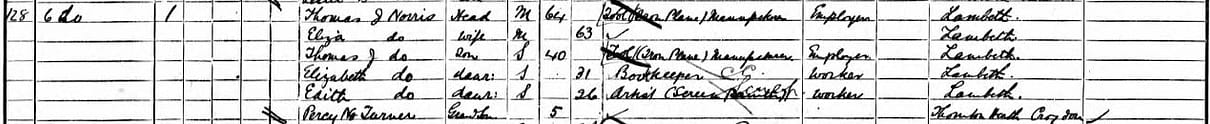 128 6 do 1 Thomas J Norris Head M 64 Tool (Iron Plane) Manufacturer Employer Lambeth.
Eliza do wife M 63 Lambeth.
Thomas J do Son S 40 Tool (Iron Plane) Manufacturer Employer Lambeth.
Elizabeth do daur: S 31 Bookkeeper worker Lambeth.
Edith do daur: S 26 Artist (Screen worker Lambeth.
Percy N Turner Grandson 5 Thornton Heath Croydon